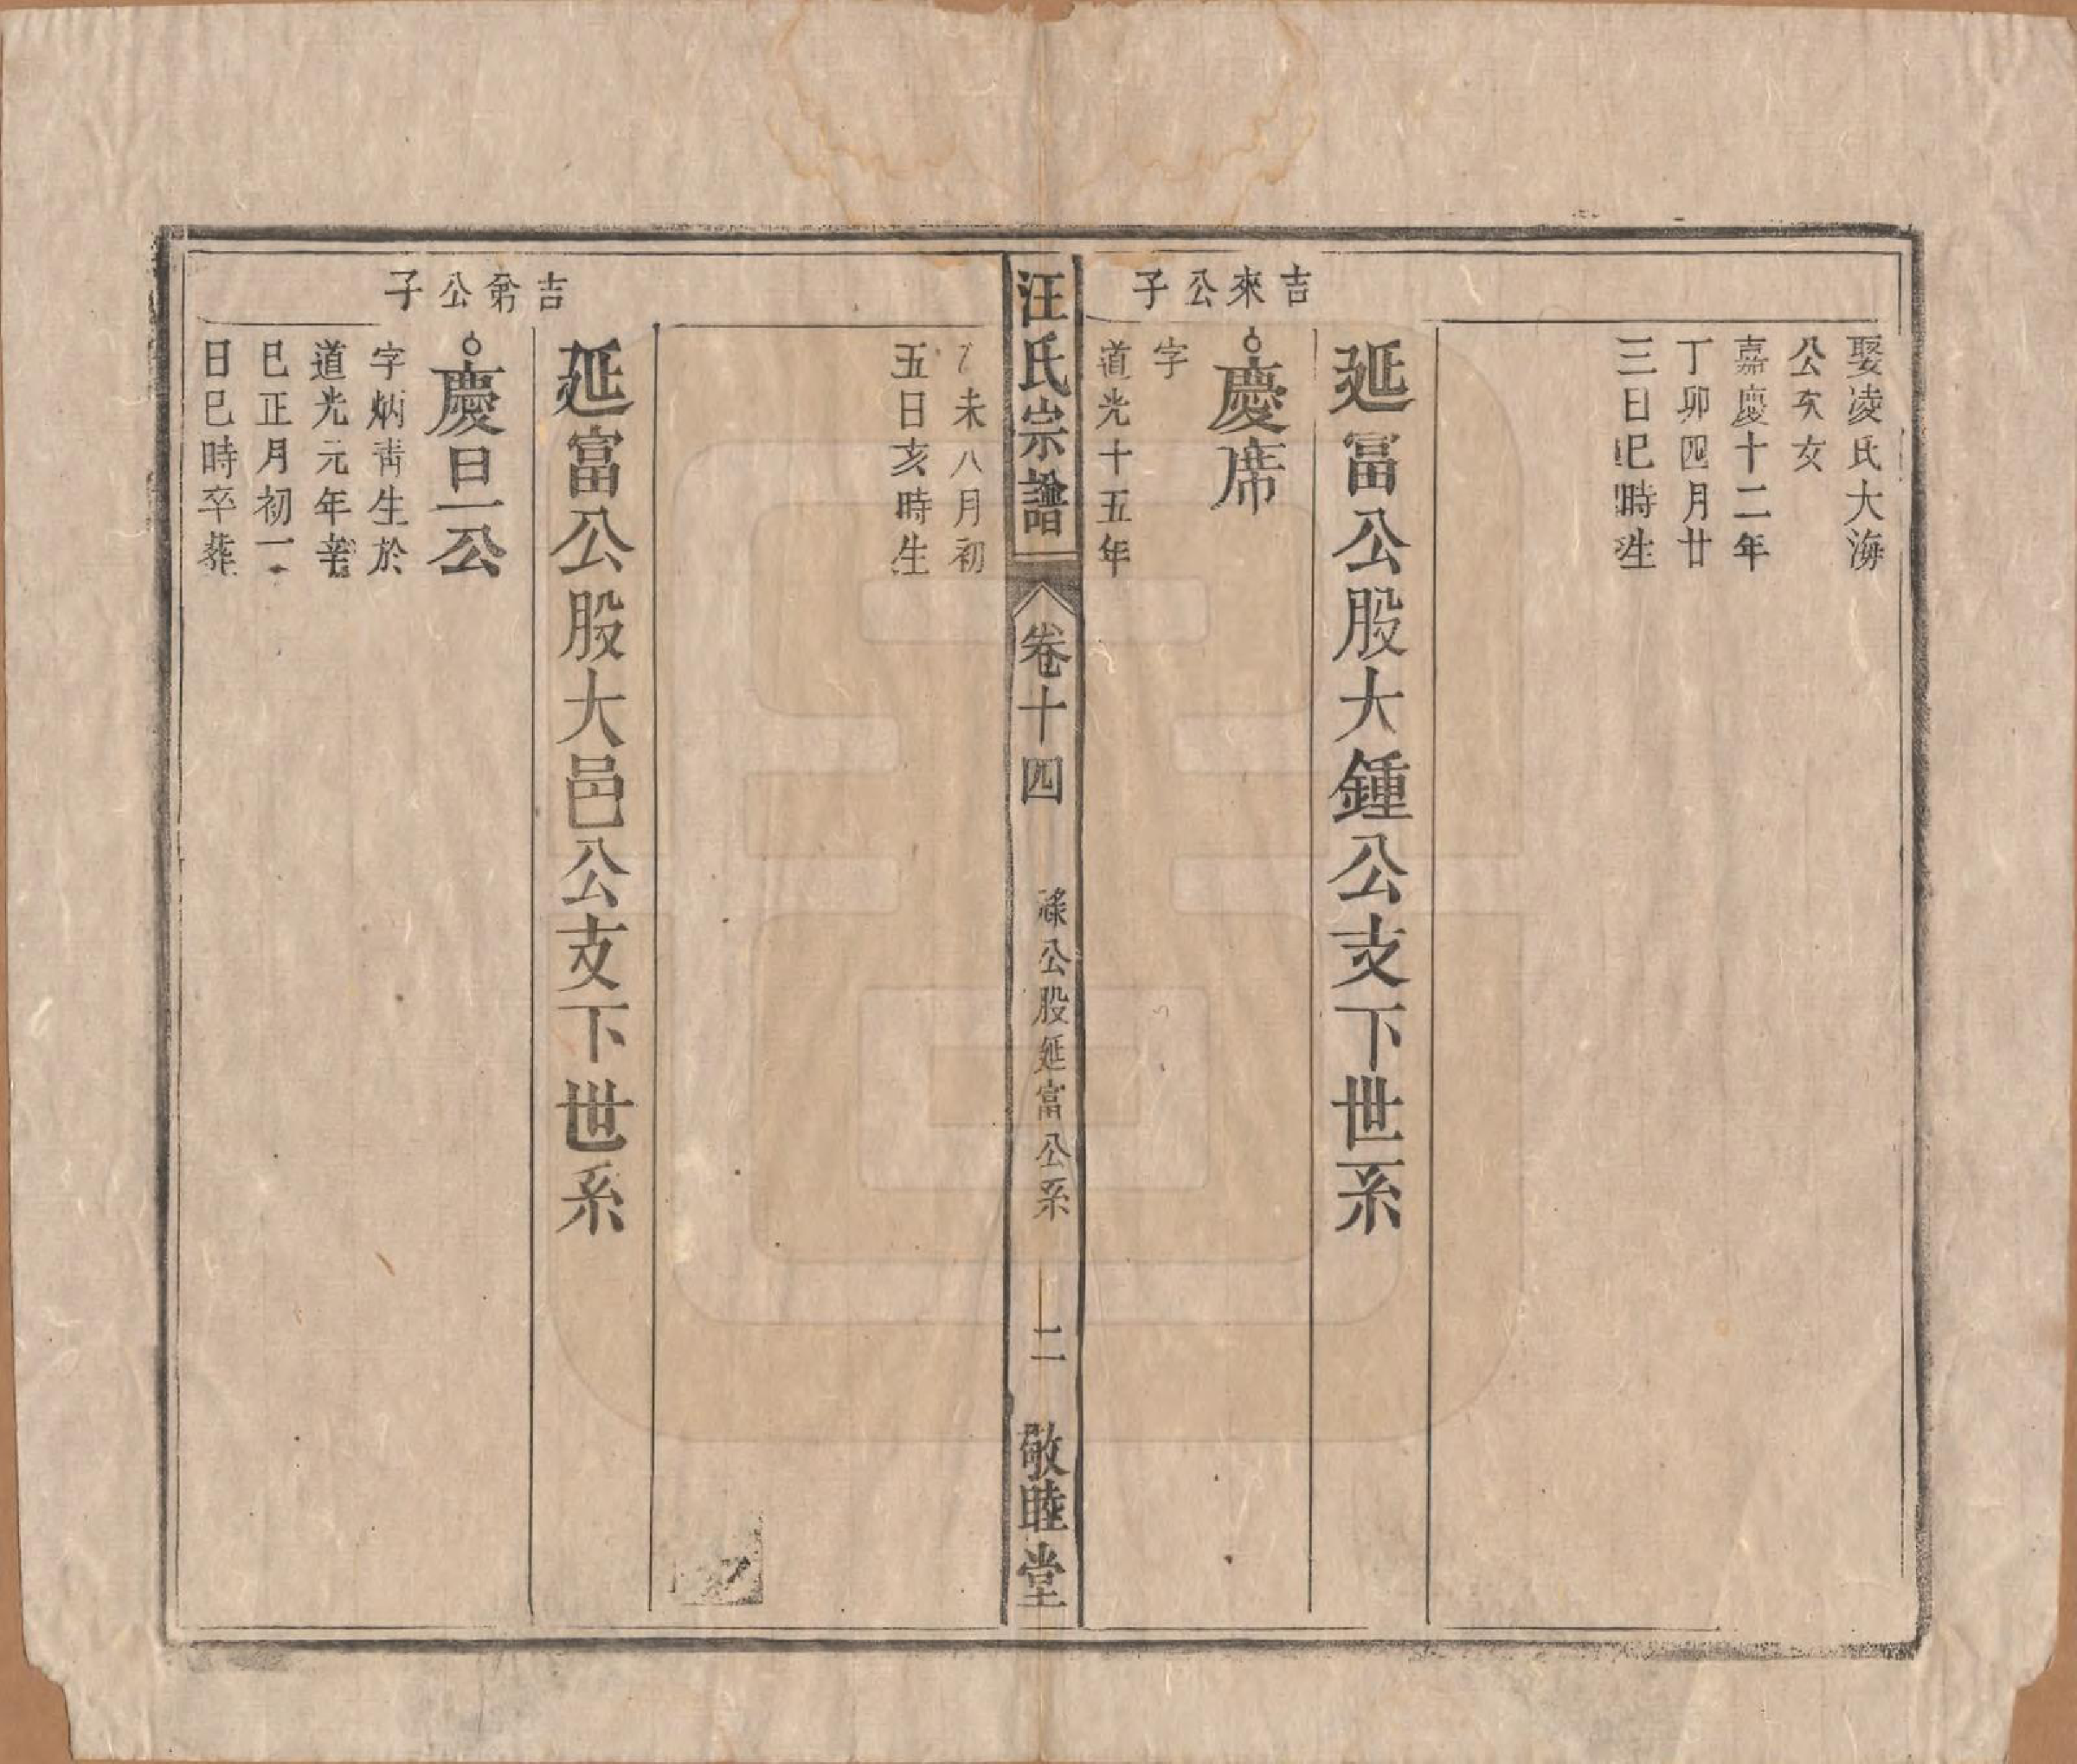 娶凌氏大海
公次女
嘉慶十二年
丁卯四月廿
三日巳時生
延富公股大鍾公支下世系
吉來公子
慶席
字
道光十五年
汪氏宗譜
卷十四
祿公股延富公系
二
敬睦堂
未八月初
五日亥時生
延富公股大邑公支下世系
吉爺公子
慶旦公
字炳靑生於
道光元年辛
巳正月初一
日巳時卒葬